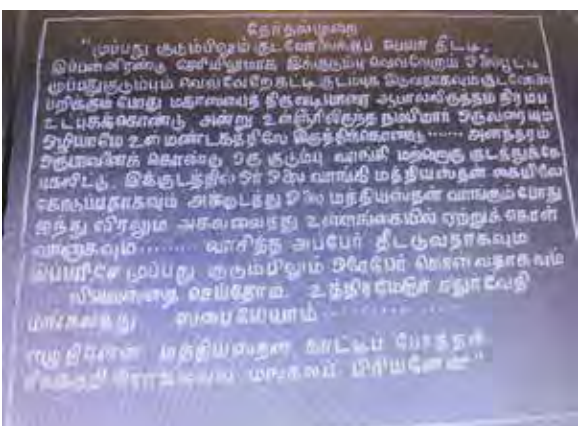 தேர்தல்முறை
"முப்பது குடும்பிலும் குடவோலைக்குப் பெயர் தீட்டி,
இப்பன்னிரண்டு சேரியிலுமாக இக்குடும்பு வெவ்வேறே ஓலைபூட்டி
முப்பதுகுடும்பும் வெவ்வேறேகட்டி குடம்புக இடுவதாகவும் குடவோலை
பறிக்கும் போது மகாஸபைத் திருவடியாரை ஆபாலவிருத்தம் நிரம்ப
உட்புகக்கொண்டு அன்று உள்ளூரிலிருந்த நம்பிமார் ஒருவரையும்
ஒழியாமே உள் மண்டகத்திலே இருத்திக்கொண்டு ...... அனந்தரம்
ஒருபாலனைக் கொண்டு ஒரு குடும்பு வாங்கி மற்றொரு குடத்துக்கே
புகவிட்டு, இக்குடத்தில் ஓர் ஓலை வாங்கி மத்தியஸ்தன் கையிலே
கொடுப்பதாகவும் அக்கொடுத்த ஓலை மத்தியஸ்தன் வாங்கும்போது
ஐந்து விரலும் அகலவைத்து உள்ளங்கையில் ஏற்றுக் கொள்
வானாகவும் ........ வாசித்த அப்பேர் தீட்டுவதாகவும்
இப்பரிசே முப்பது குடும்பிலும் ஒரோபேர் கொள்வதாகவும்
செய்தோம். உத்திரமேரூர் சதுர்வேதி
மங்கலத்து ஸபையோம் ............
எழுதினேன் மத்தியஸ்தன் காட்டிப் போத்தன்
மங்கலம் பிரியனேன்"